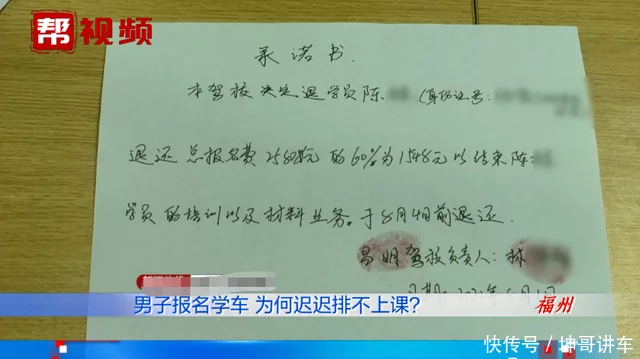 帮视频
承诺书.
本驾校决定退学员陈 (身份证号:
退还总报名费2580元的60%为1548元以结束陈
学员的培训以及材料业务.于8月4日前退还.
驾校负责人:林
男子报名学车 为何迟迟排不上课?
福州
快传号/坤哥讲车